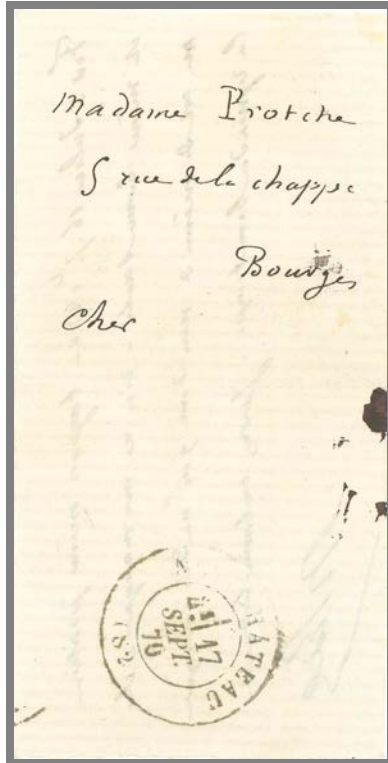 Madame Protche
5 rue de la chappe
Bourges
Cher
HATEAU
17
SEPT.
70